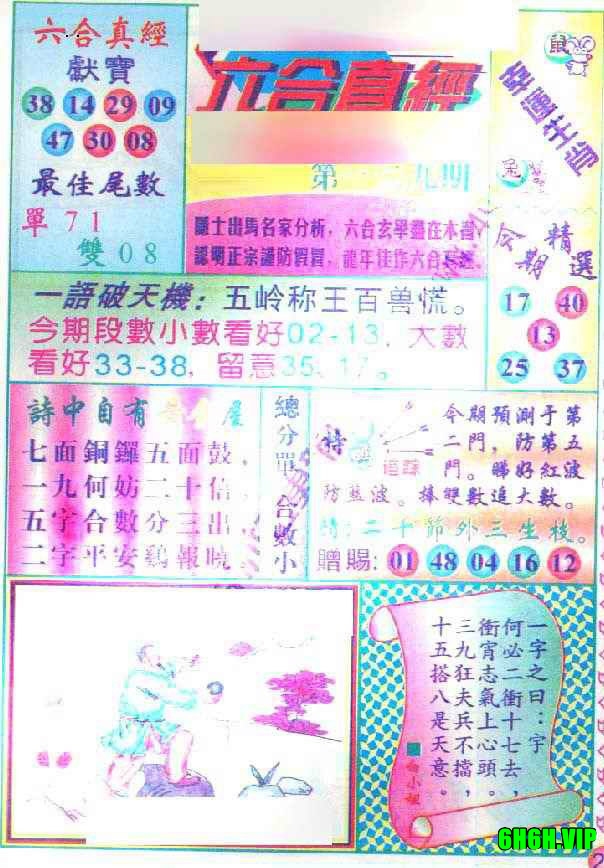 六合真經
獻寶
38 14 29 09
47 30 08
最佳尾數
單 71
雙 08
六合真經
第 九期
隱士出馬名家分析，六合玄學盡在本書
認明正宗謹防假冒，龍年佳作六合真經
鼠
幸運生肖
兔
今期精選
17 40
13
25 37
一語破天機：五岭称王百兽慌。
今期段數小數看好02-13，大數
看好33-38，留意35、17。
詩中自有
七面銅鑼五面鼓，
一九何妨二十倍，
五字合數分三出，
二字平安鷄報曉。
總分單 合數小
特
追踪
今期預測于第
二門，防第五
門。睇好紅波
防藍波。捧雙數追大數。
詩：二十節外三生枝。
贈賜：01 48 04 16 12
一字之曰：宇
何必二衝十七去，
衝宵志氣上心頭。
三九狂夫兵不擋，
十五搭八是天意。
白小姐
6H6H.VIP